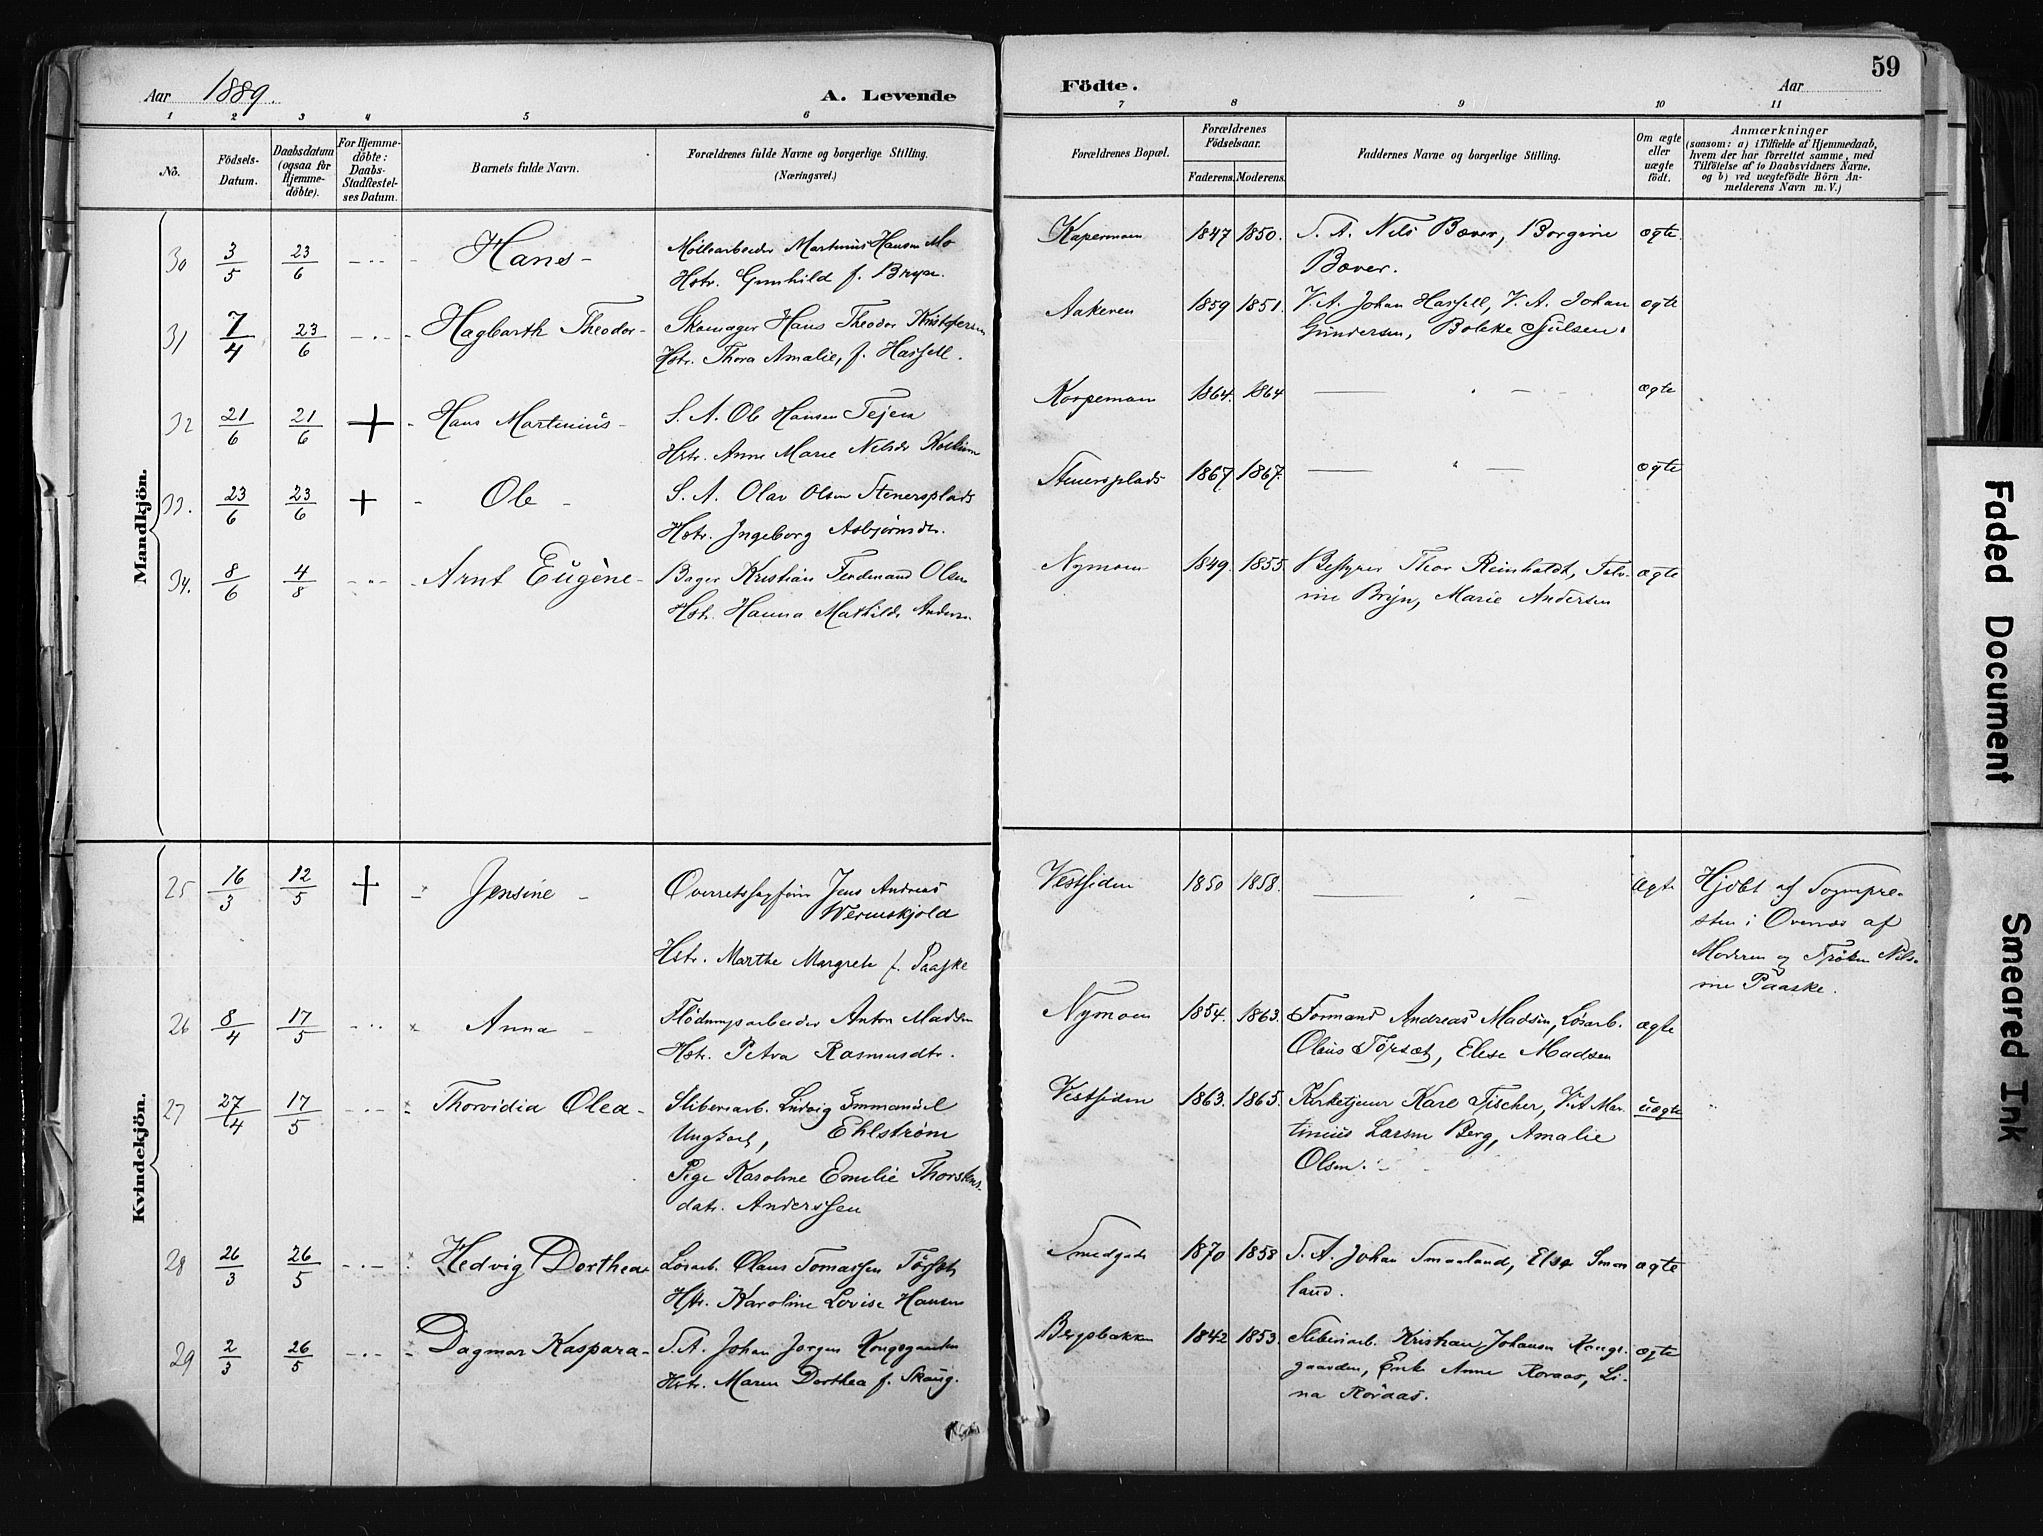 59
Aar 1889.
A. Levende
Födte.
Aar
1 2 3 4 5 6 7 8 9 10 11
No.
Födsels-Datum.
Daabsdatum (ogsaa for Hjemmedöbte).
For Hjemmedöbte: Daabs-Stadfestelses Datum.
Barnets fulde Navn.
Forældrenes fulde Navne og borgerlige Stilling.
(Næringsvei.)
Forældrenes Bopæl.
Forældrenes Födselsaar.
Faderens. Moderens.
Faddernes Navne og borgerlige Stilling.
Om ægte eller uægte födt.
Anmærkninger
(saasom: a) i Tilfælde af Hjemmedaab, hvem der har forrettet samme, med Tilföielse af to Daabsvidners Navne, og b) ved uægtefödte Börn Anmelderens Navn m. V.)
Mandkjön.
30 3/5 23/6 Hans Møllearbeider Martinius Hansen Mo
Hstr. Gunhild f. Bryn.
Kapermoen 1847 1850. S. A. Nils Bæver, Borgine ægte
Bæver.
31 7/4 23/6 Hagbarth Theodor Skomager Hans Theodor
Hstr. Thora Amalie, f. Hassell.
Aakeren 1859 1851. V. A. Johan Hassell, V. A. Johan ægte
Gundersen, Bolette Julsen.
32 21/6 21/6 + Hans Martinius S. A. Ole Hansen Tejen
Hstr. Anne Marie Nilsdr
Korpemoen 1864. 1864 ægte
33. 23/6 23/6 + Ole S. A. Olav Olsen Stenersplads
Hstr. Ingeborg Asbjørnsdr.
Stenersplads 1867 1867. ægte
34. 8/6 4/8 Arnt Eugène Bager Kristian Ferdinand Olsen
Hstr. Hanna Mathilde Anders.
Nymoen 1849. 1855. Bestyrer Thor Reinholdt, ægte
Bryn, Marie Andersen
Kvindekjön.
25 16/3 12/5 + Jensine Overretssagfører Jens Andreas
Wermskjold
Hstr. Marthe Margrete f. Paaske
Vestsiden 1850 1858. ægte Hjdbt af Sognepre-
sten i af
Moderen og Frøken Nils-
ine Paaske.
26 8/4 17/5 Anna Flödningsarbeider Anton Madsen
Hstr. Petra Rasmusdtr.
Nymoen 1854. 1863. Formand Andreas Madsen, Løsarb. ægte
Olaus Törset, Elise Madsen
27 27/4 17/5 Thorvidia Olea Sliberiarb. Ludvig Emmanuel
Ungkarl, Ehlström
Pige Karoline Emilie Thorstens-
datr. Anderssen
Vestsiden 1863. 1865. Kirketjener Karl Fischer, V. A. Mar- uægte
tinius Larsen Berg, Amalie
Olsen.
28 26/3 26/5 Hedvig Dorthea Løsarb. Olaus Tomassen Törset
Hstr. Karoline Lovise Hansen
Smedgade 1870 1858 S. A. Johan Smaaland, Else Smaa- ægte
land.
29 2/3 26/5 Dagmar Kaspara S. A. Johan Jørgen Kongsgaarden
Hstr. Maren Dorthea f. Skaug.
Bergsbakken 1842 1853. Sliberiarb. Kristian Johansen Kongs- ægte
gaarden, Enke Anne Roraas, Li-
na Roraas.
Faded Document
Smeared Ink